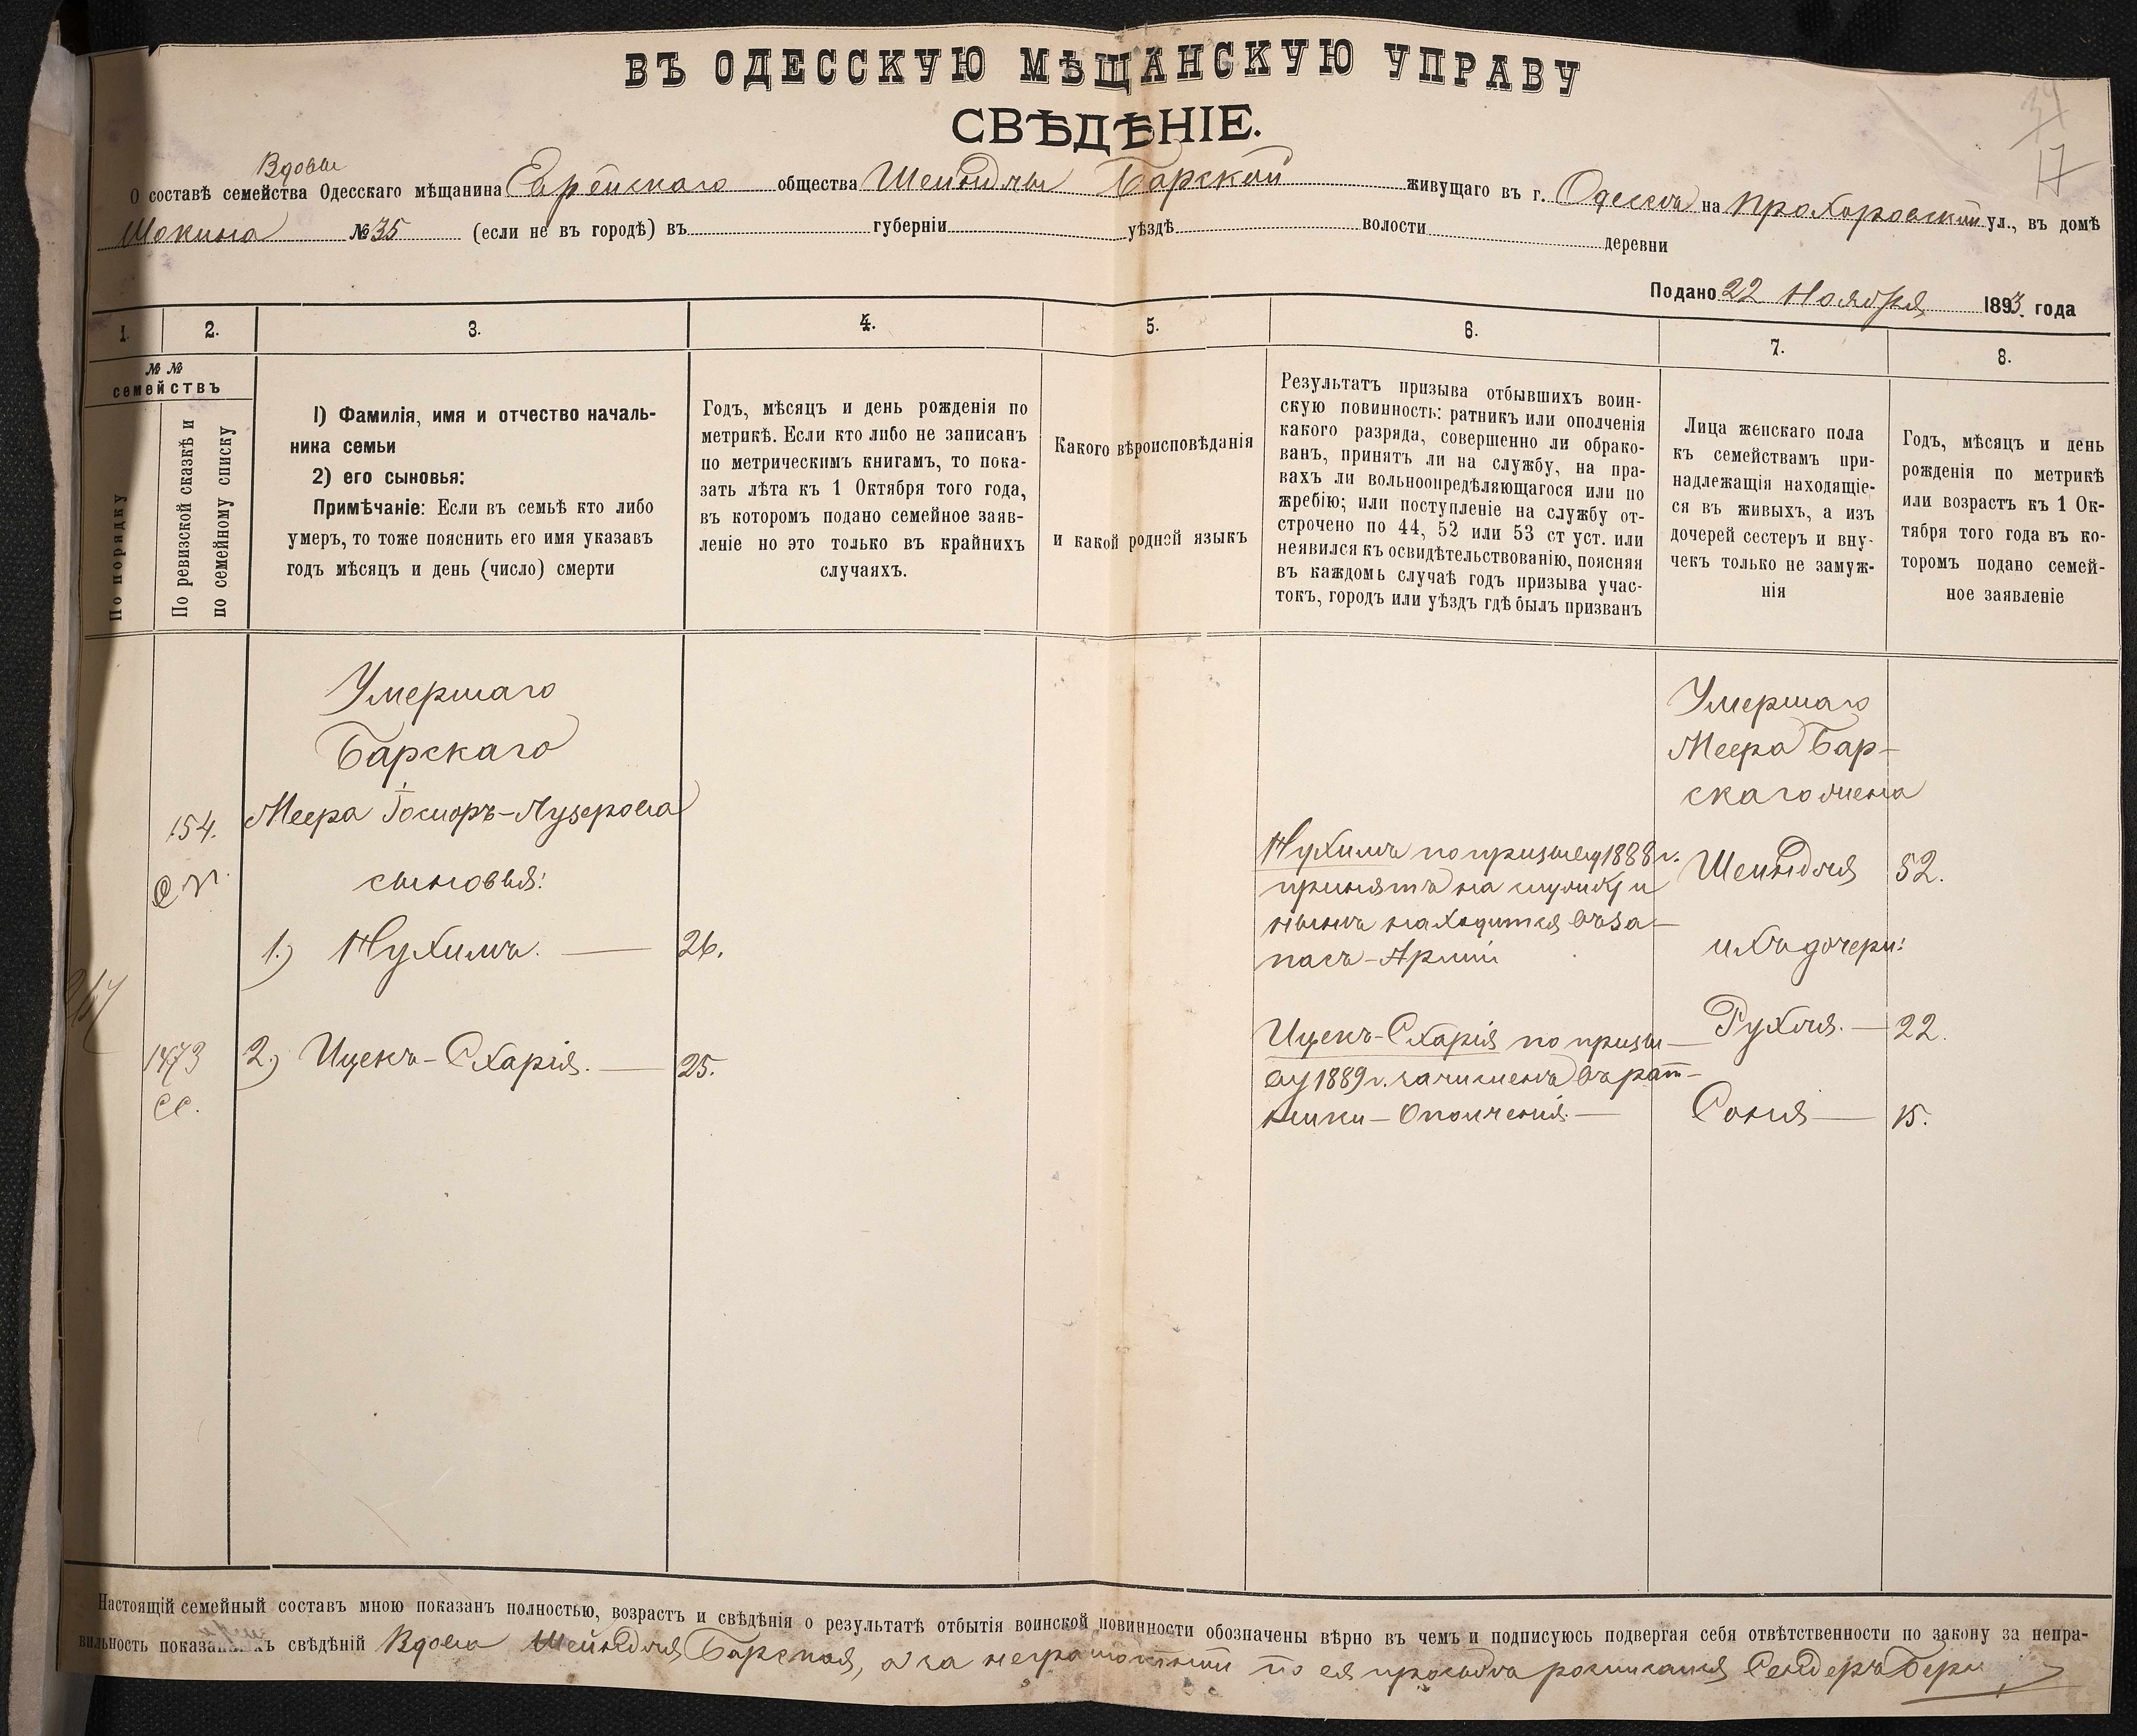 ВЪ ОДЕССКУЮ МѢЩАНСКУЮ УПРАВУ
СВѢДѢНІЕ.
Вдовы
О составѣ семейства Одесскаго мѣщанина Еврейскаго общества Шейндли Барской живущаго въ г. Одессѣ на Прохоровской ул., въ домѣ
№ 35 (если не въ городѣ) въ губерніи уѣздѣ волости деревни
Подано 22 Ноября 1893. года
1. 2. 3. 4. 5. 6. 7. 8.
№ №
семействъ
По порядку
По ревизской сказкѣ и
по семейному списку
1) Фамилія, имя и отчество началь-
ника семьи
2) его сыновья:
Примѣчаніе: Если въ семьѣ кто либо
умеръ, то тоже пояснить его имя указавъ
годъ мѣсяцъ и день (число) смерти
Годъ, мѣсяцъ и день рожденія по
метрикѣ. Если кто либо не записанъ
по метрическимъ книгамъ, то пока-
зать лѣта къ 1 Октября того года,
въ которомъ подано семейное заяв-
леніе но это только въ крайнихъ
случаяхъ.
Какого вѣроисповѣданія
и какой родной языкъ
Результатъ призыва отбывшихъ воин-
скую повинность: ратникъ или ополченія
какого разряда, совершенно ли обрако-
ванъ, принятъ ли на службу, на пра-
вахъ ли вольноопредѣляющагося или по
жребію; или поступленіе на службу от-
строчено по 44, 52 или 53 ст уст. или
неявился къ освидѣтельствованію, поясняя
въ каждомъ случаѣ годъ призыва учас-
токъ, городъ или уѣздъ гдѣ былъ призванъ
Лица женскаго пола
къ семействамъ при-
надлежащія находящіе-
ся въ живыхъ, а изъ
дочерей сестеръ и вну-
чекъ только не замуж-
нія
Годъ, мѣсяцъ и день
рожденія по метрикѣ
или возрастъ къ 1 Ок-
тября того года въ ко-
торомъ подано семей-
ное заявленіе
Умершаго
Барскаго
154. Меера Іосиоръ-Лузерова
сыновья:
1.) Нухимъ. — 26.
1473 2.) Ицекъ-Схарія. — 25.
сс.
Нухимъ по призыву 1888 г.
принятъ на службу и
нынѣ находится въ за-
пасѣ-Арміи
Ицекъ-Схарія по призы-
ву 1889 г. зачисленъ въ рат-
ники-Ополченія. —
Умершаго
Меера Бар-
скаго жена
Шейндля 52.
ихъ дочери:
Рухля. — 22.
Соня — 15.
Настоящій семейный составъ мною показанъ полностью, возрастъ и свѣдѣнія о результатѣ отбытія воинской повинности обозначены вѣрно въ чемъ и подписуюсь подвергая себя отвѣтственности по закону за непра-
вильность показанныхъ свѣдѣній Вдова Шейндля Барская, а за неграмотной по ея просьбѣ росписался Сендеръ